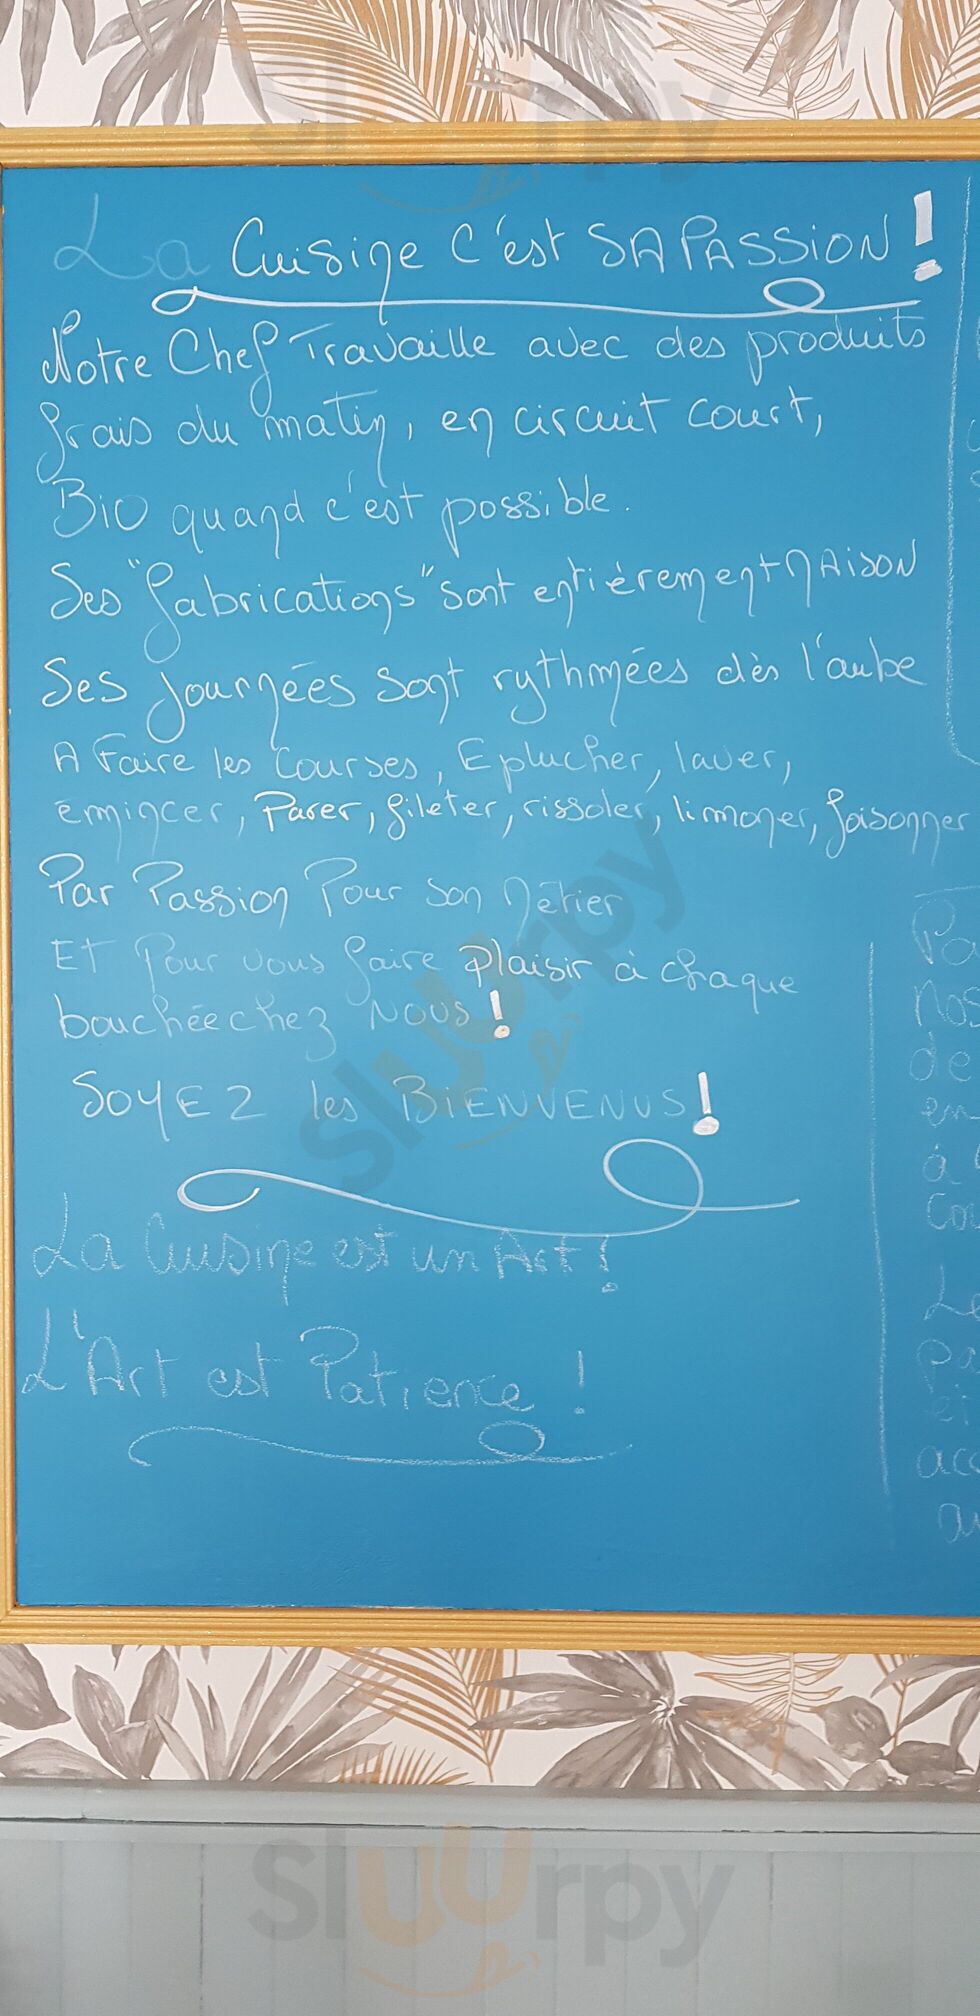 La Cuisine C'est SA PASSION !
Notre Chef Travaille avec des produits
frais du matin, en circuit court,
Bio quand c'est possible.
Ses "fabrications" sont entièrement MAison
Ses journées sont rythmées dès l'aube
A Faire les Courses, Eplucher, laver,
émincer, Parer, fileter, rissoler, limoner, foisonner
Par Passion Pour Son Métier
ET Pour vous faire Plaisir à chaque
bouchée chez NOUS !
SOYEZ les BIENVENUS !
La Cuisine est un Art !
L'Art est Patience !
Nos
de
en
à
sluurpy
sluurpy
sluurpy